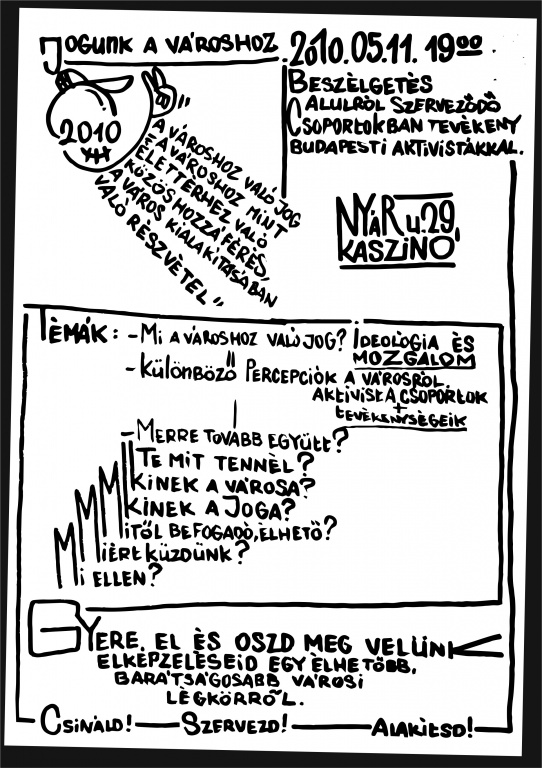 JOGUNK A VÁROSHOZ
2010.05.11. 19⁰⁰
BESZÈLGETÈS
ALULRÒL SZERVEZŐDŐ
CSOPORTOKBAN TEVÈKENY
BUDAPESTI AKTIVISTÁKKAL.
2010
"A VÁROSHOZ VALÓ JOG
A VÁROSHOZ MINT
ÉLETTÉRHEZ VALÓ
KÖZÖS HOZZÁFÉRÉS,
A VÁROS KIALAKÍTÁSÁBAN
VALÓ RÉSZVÉTEL"
NYÁR U. 29,
KASZINÓ
TÈMÁK: -MI A VÁROSHOZ VALÓ JOG? IDEOLÒGIA ÈS
MOZGALOM
-KÜLÖNBÖZŐ PERCEPCIÓK A VÁROSRÒL.
AKTIVISTA CSOPORTOK
+
TEVÈKENYSÈGEIK
-MERRE TOVÁBB EGYÜTT?
TE MIT TENNÈL?
KINEK A VÁROSA?
KINEK A JOGA?
MITŐL BEFOGADÓ, ÈLHETŐ?
MIÈRT KÜZDÜNK?
MI ELLEN?
GYERE EL ÈS OSZD MEG VELÜNK
ELKÈPZELÈSEID EGY ÈLHETŐBB,
BARÁTSÁGOSABB VÁROSI
LÈGKÖRRŐL.
CSINÁLD! SZERVEZD! ALAKÍTSD!